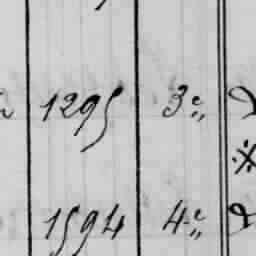 1295 3e„
※
1594 4e„